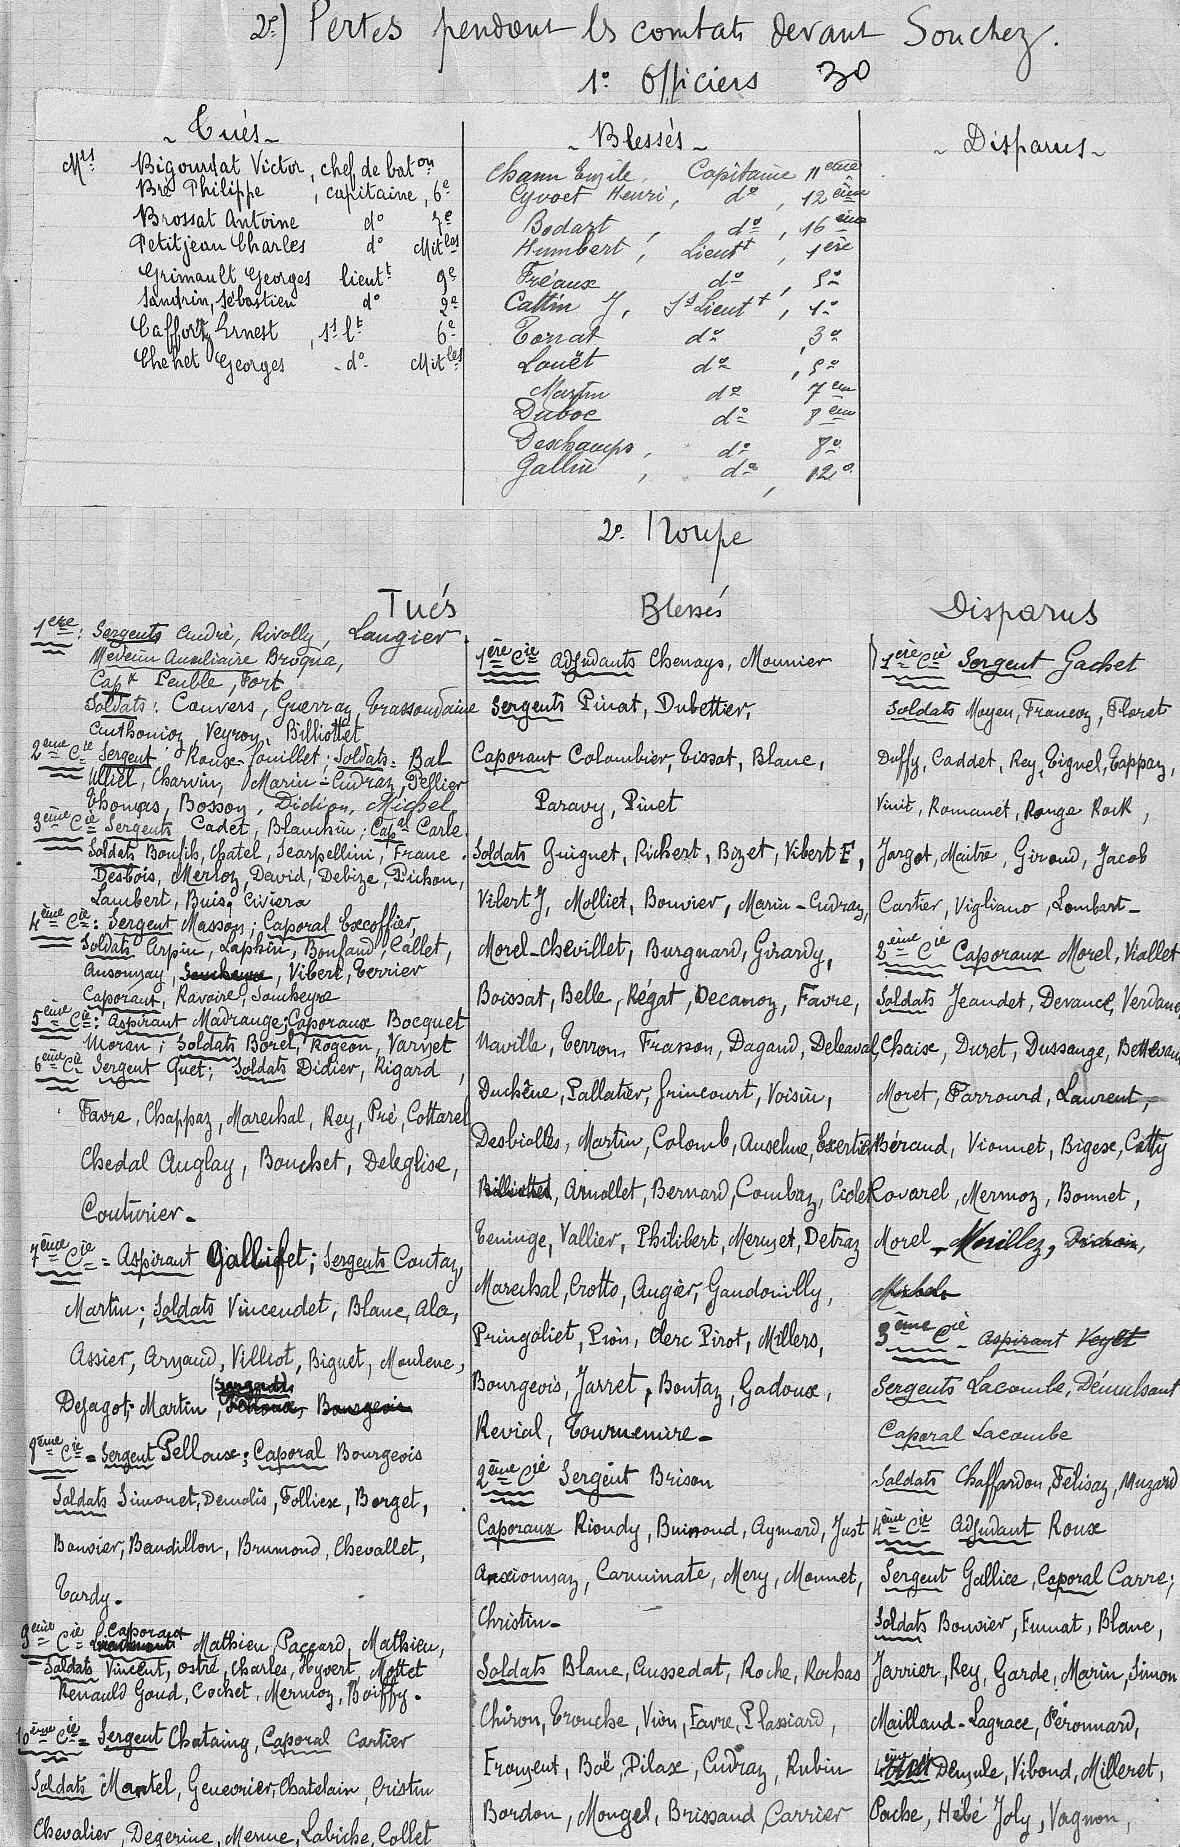 2º) Pertes pendant les combats devant Souchez.
1º Officiers 30
- Tués -
Mrs Bigourdat Victor, chef de baton
Bré Philippe, capitaine, 6e
Brossat Antoine dº 7e
Petitjean Charles dº Mitles
Grimault Georges lieutt 9e
Sandrin, Sébastien dº 2e
Caffort Ernest, ss lt 6e
Chehet Georges - dº Mitles
- Blessés -
Chann Emile, Capitaine 11ème
Cyvoct Henri, dº, 12ème
Bodart, dº, 16ème
Humbert, Lieutt, 1ère
Fréaux dº, 5º
Cattin J, Ss Lieutt, 1º
Torrat dº, 3º
Louët dº, 5º
Martin dº 7ème
Duboc dº 8ème
Deschamps, dº 8º
Gallin, dº, 12º
- Disparus -
2º Troupe
Tués
1ère: Sergents André, Rivolly, Laugier,
Médecin Auxiliaire Broqua,
Capx Peuble, Fort
Soldats: Convers, Guerraz, Trassoudaine
Anthonioz, Veyron, Billiottet
2ème Cie Sergent Roux-Fouillet; Soldats: Bal
Ulliel, Charvin, Marin-Cudraz, Pellier
Thomas, Bosson, Didion, Michel
3ème Cie Sergents, Cadet, Blanchin; Capal Carle.
Soldats Bonfils, Chatel, Scarpellini, Franc.
Desbois, Merloz, David, Debize, Pichon,
Lambert, Buis, Civiera
4ème Cie: Sergent Masson; Caporal Excoffier,
Soldats Arpin, Laphin, Bonfand, Callet,
Ansonnay, Soucheyre, Vibert, Terrier
Caporant, Ravoire, Soucheyre
5ème Cie: Aspirant Madrange; Caporaux Bocquet
Moran; Soldats Borel, Rogeon, Varvet
6ème Cie Sergent Quet; Soldats Didier, Rigard,
Favre, Chappaz, Marechal, Rey, Pré, Cottarel
Chedal Anglay, Bouchet, Deleglise,
Couturier.
7ème Cie = Aspirant Gallifet; Sergents Coutaz,
Martin; Soldats Vincendet, Blanc, Ala,
Assier, Arnaud, Villiot, Biguet, Moulene,
(Sergent)
Dejagot; Martin, Bourgeois
8ème Cie = Sergent Pelloux; Caporal Bourgeois
Soldats Simonet, Demolis, Folliex, Berget,
Bouvier, Baudillon, Brumond, Chevallet,
Tardy.
9ème Cie Caporaux Mathieu, Paccard, Mathieu,
Soldats Vincent, Ostré, Charles, Hyvert, Mottet
Renauld Goud, Cochet, Mermoz, Boiffy.
10ème Cie = Sergent Chataing, Caporal Cartier
Soldats Mantel, Genevrier, Chatelain, Cristin
Chevalier, Degerine, Merme, Labiche, Collet
Blessés
1ère Cie Adjudants Chenays, Mounier
Sergents Pinat, Dubettier,
Caporant Colombier, Tissot, Blanc,
Paravy, Pinet
Soldats Guiguet, Richert, Bizet, Vibert F,
Vibert J, Molliet, Bouvier, Marin-Cudraz,
Morel-Chevillet, Burgnard, Girardy,
Boissat, Belle, Régat, Decarroz, Favre,
Naville, Terron, Frasson, Dagand, Deleaval,
Duchêne, Pallatier, Grincourt, Voisin,
Desbiolles, Martin, Colomb, Anselme, Exertier
Billiottet, Arnollet, Bernard, Combaz, Ciclet
Teninge, Vallier, Philibert, Mermet, Detraz
Marechal, Crotto, Augèr, Gandouilly,
Pringoliet, Pion, Clerc Pirot, Millers,
Bourgeois, Jarret, Bontaz, Gadoux,
Revial, Tournemire -
2ème Cie Sergent Brison
Caporaux Riondy, Buinoud, Aymard, Just
Anxionnaz, Carminate, Mery, Monnet,
Christin -
Soldats Blanc, Cussedat, Roche, Rochas
Chiron, Trouche, Vion, Favre, Plassiard,
Froment, Boë, Pilax, Cudraz, Rubin
Bordon, Mongel, Brissaud, Carrier
Disparus
1ère Cie Sergent Gachet
Soldats Moyen, Francoz, Floret
Duffy, Caddet, Rey, Tignel, Tappaz,
Vinit, Romanet, Range Rock,
Jargot, Maitre, Giroud, Jacob
Cartier, Vigliano, Lombart -
2ème Cie Caporaux Morel, Viallet
Soldats Jeandet, Devance, Verdance
Chaix, Duret, Dussange, Bettevaux
Moret, Farroud, Laurent,
Béraud, Vionnet, Bigex, Catty
Covarel, Mermoz, Bonnet,
Morel - Morillez, Didion,
Michel
3ème Cie - Aspirant Veyet
Sergents Lacombe, Démulsant
Caporal Lacombe
Soldats Chaffardon, Félisaz, Muzard
4ème Cie Adjudant Roux
Sergent Gallice, Caporal Carre;
Soldats Bouvier, Fumat, Blanc,
Jarrier, Rey, Garde, Marin, Simon
Mailland-Lagrace, Péronnard,
Demule, Viboud, Milleret,
Poche, Hébé Joly, Vagnon,